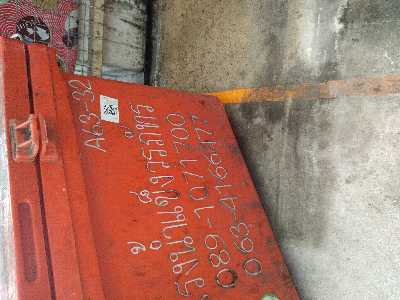 A63-32
โรงน้ำแข็งวรภัทร
089-1071700
063-4166177